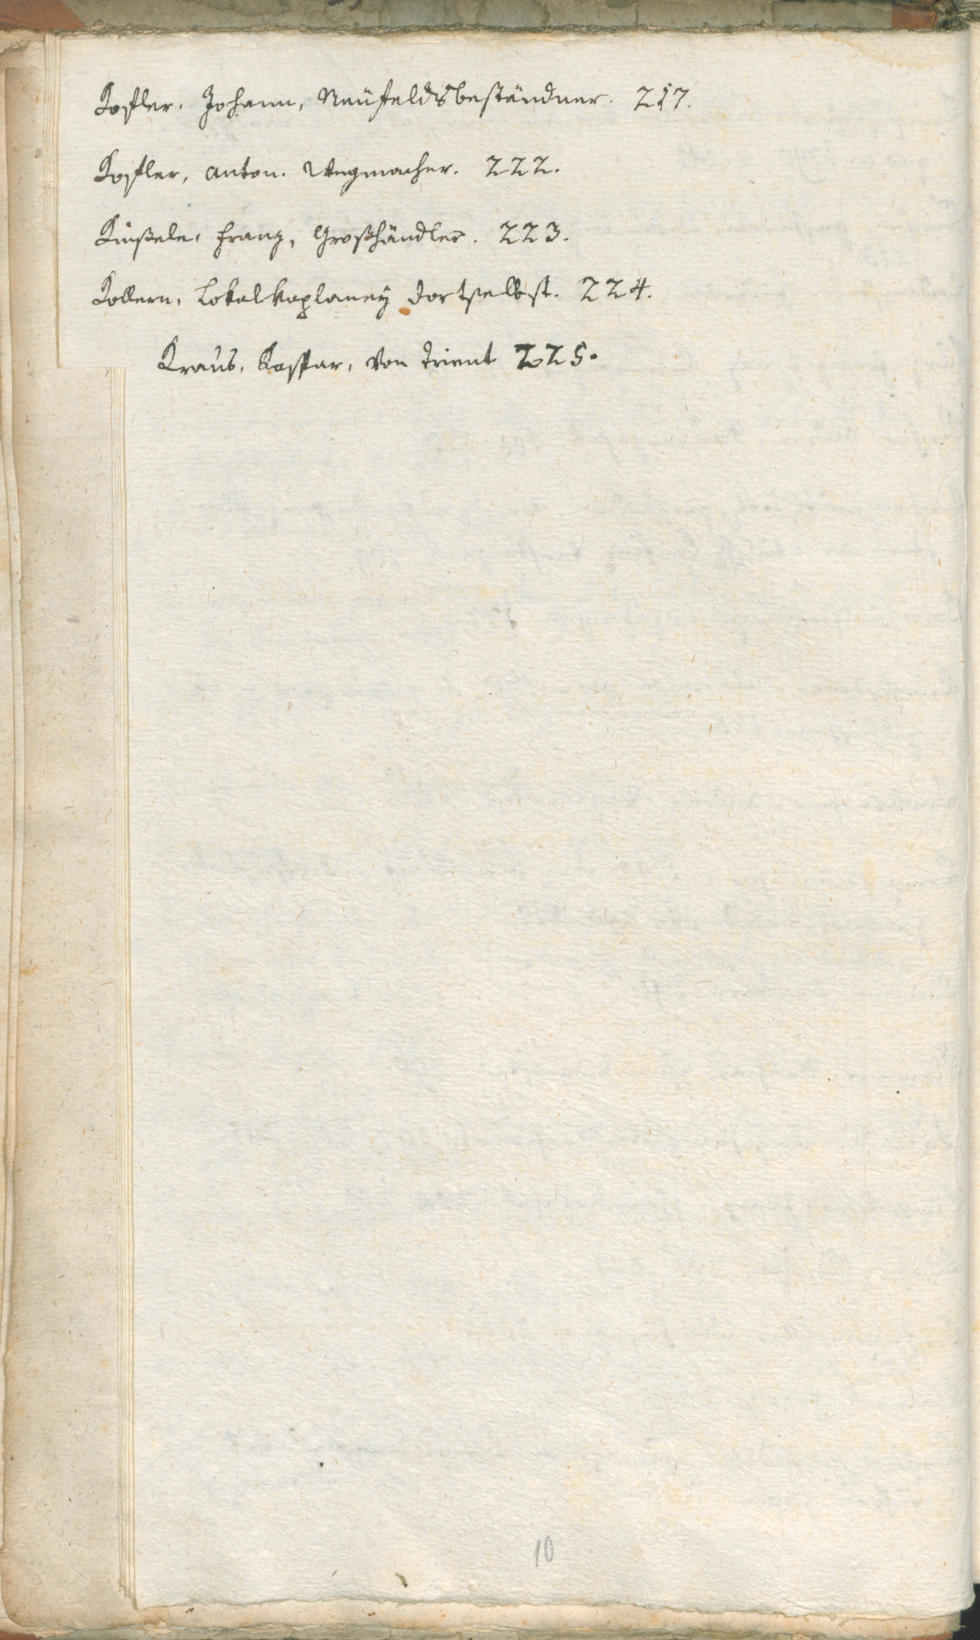 Kofler. Johann, Neüfeldsbeständner. 217.
Kofler, Anton. Wegmacher. 222.
Kinsele, Franz, Großhändler. 223.
Kollern, Lokalkaplaney dortselbst. 224.
Kraus, Kaspar, von Trient 225.
10